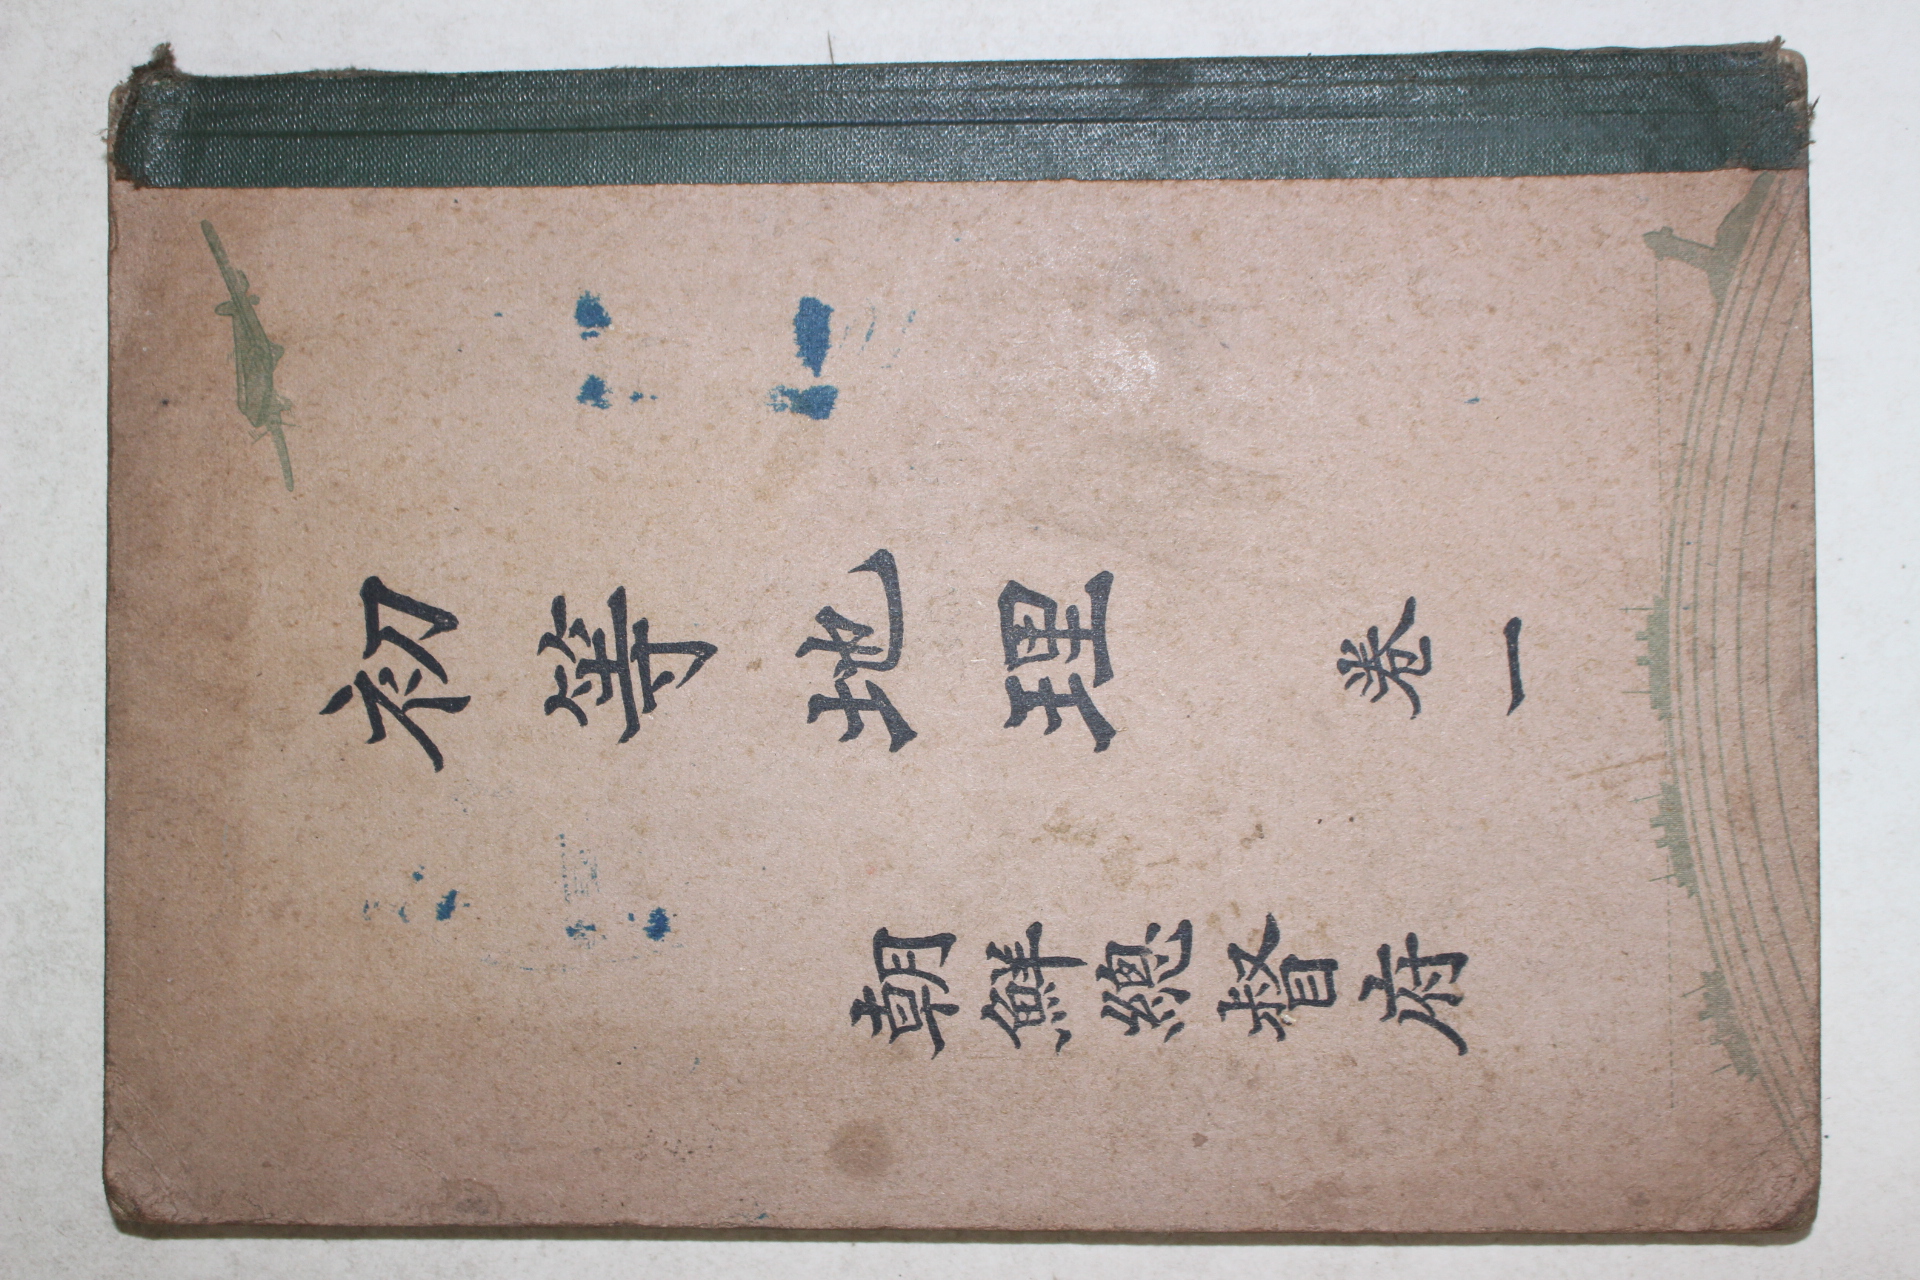 初等地理 卷一
朝鮮總督府